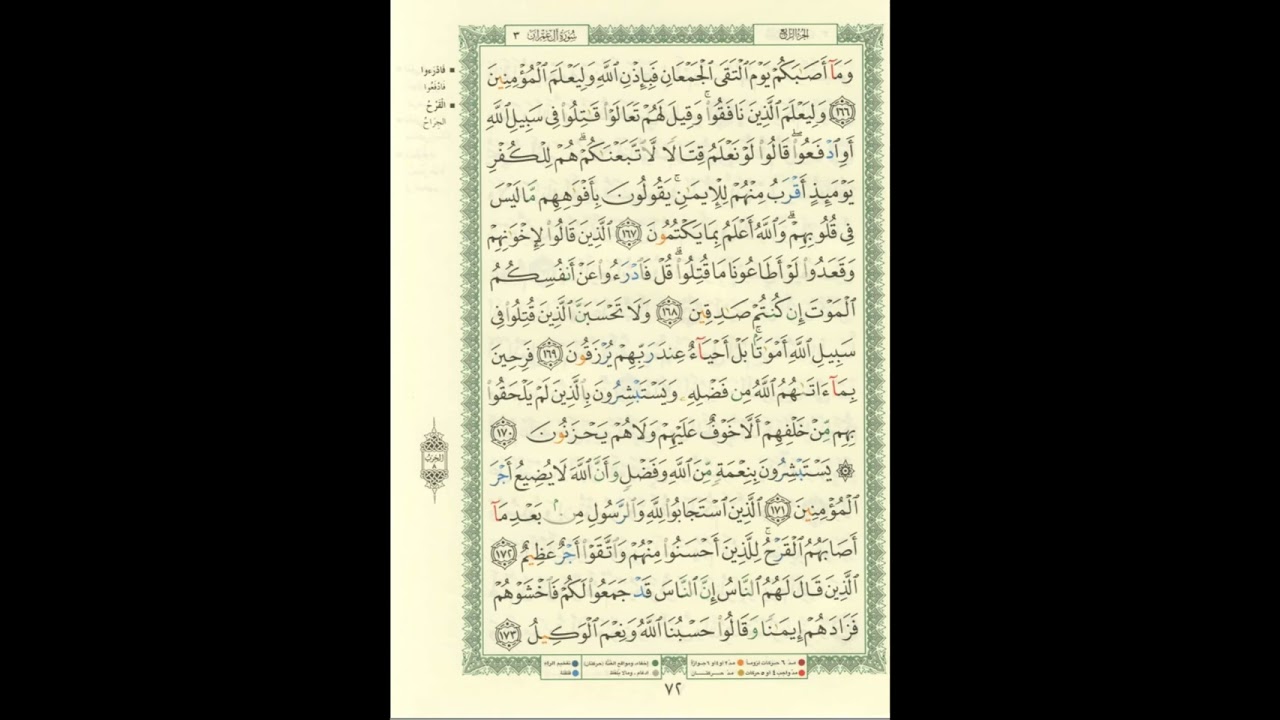 الجزء الرابع
سورة آل عمران ٣
وَمَآ أَصَٰبَكُمْ يَوْمَ ٱلْتَقَى ٱلْجَمْعَانِ فَبِإِذْنِ ٱللَّهِ وَلِيَعْلَمَ ٱلْمُؤْمِنِينَ
١٦٦ وَلِيَعْلَمَ ٱلَّذِينَ نَافَقُوا۟ۚ وَقِيلَ لَهُمْ تَعَالَوْا۟ قَٰتِلُوا۟ فِى سَبِيلِ ٱللَّهِ
أَوِ ٱدْفَعُوا۟ۖ قَالُوا۟ لَوْ نَعْلَمُ قِتَالًا لَّٱتَّبَعْنَٰكُمْۗ هُمْ لِلْكُفْرِ
يَوْمَئِذٍ أَقْرَبُ مِنْهُمْ لِلْإِيمَٰنِۚ يَقُولُونَ بِأَفْوَٰهِهِم مَّا لَيْسَ
فِى قُلُوبِهِمْۗ وَٱللَّهُ أَعْلَمُ بِمَا يَكْتُمُونَ ١٦٧ ٱلَّذِينَ قَالُوا۟ لِإِخْوَٰنِهِمْ
وَقَعَدُوا۟ لَوْ أَطَاعُونَا مَا قُتِلُوا۟ۗ قُلْ فَٱدْرَءُوا۟ عَنْ أَنفُسِكُمُ
ٱلْمَوْتَ إِن كُنتُمْ صَٰدِقِينَ ١٦٨ وَلَا تَحْسَبَنَّ ٱلَّذِينَ قُتِلُوا۟ فِى
سَبِيلِ ٱللَّهِ أَمْوَٰتًۢاۚ بَلْ أَحْيَآءٌ عِندَ رَبِّهِمْ يُرْزَقُونَ ١٦٩ فَرِحِينَ
بِمَآ ءَاتَىٰهُمُ ٱللَّهُ مِن فَضْلِهِۦ وَيَسْتَبْشِرُونَ بِٱلَّذِينَ لَمْ يَلْحَقُوا۟
بِهِم مِّنْ خَلْفِهِمْ أَلَّا خَوْفٌ عَلَيْهِمْ وَلَا هُمْ يَحْزَنُونَ ١٧٠
۞ يَسْتَبْشِرُونَ بِنِعْمَةٍ مِّنَ ٱللَّهِ وَفَضْلٍ وَأَنَّ ٱللَّهَ لَا يُضِيعُ أَجْرَ
ٱلْمُؤْمِنِينَ ١٧١ ٱلَّذِينَ ٱسْتَجَابُوا۟ لِلَّهِ وَٱلرَّسُولِ مِنۢ بَعْدِ مَآ
أَصَابَهُمُ ٱلْقَرْحُۚ لِلَّذِينَ أَحْسَنُوا۟ مِنْهُمْ وَٱتَّقَوْا۟ أَجْرٌ عَظِيمٌ ١٧٢
ٱلَّذِينَ قَالَ لَهُمُ ٱلنَّاسُ إِنَّ ٱلنَّاسَ قَدْ جَمَعُوا۟ لَكُمْ فَٱخْشَوْهُمْ
فَزَادَهُمْ إِيمَٰنًا وَقَالُوا۟ حَسْبُنَا ٱللَّهُ وَنِعْمَ ٱلْوَكِيلُ ١٧٣
فَادْرَءوا
فَادْفَعُوا
الْقَرْحُ
الجِرَاحُ
الحزب
٨
مدّ ٦ حركات لزوماً
مدّ ٢ او ٤ او ٦ جوازاً
إخفاء، ومواقع الغنّة (حركتان)
تفخيم الراء
مدّ واجب ٤ او ٥ حركات
مدّ حركتان
ادغام، وما لا يلفظ
قلقلة
٧٢